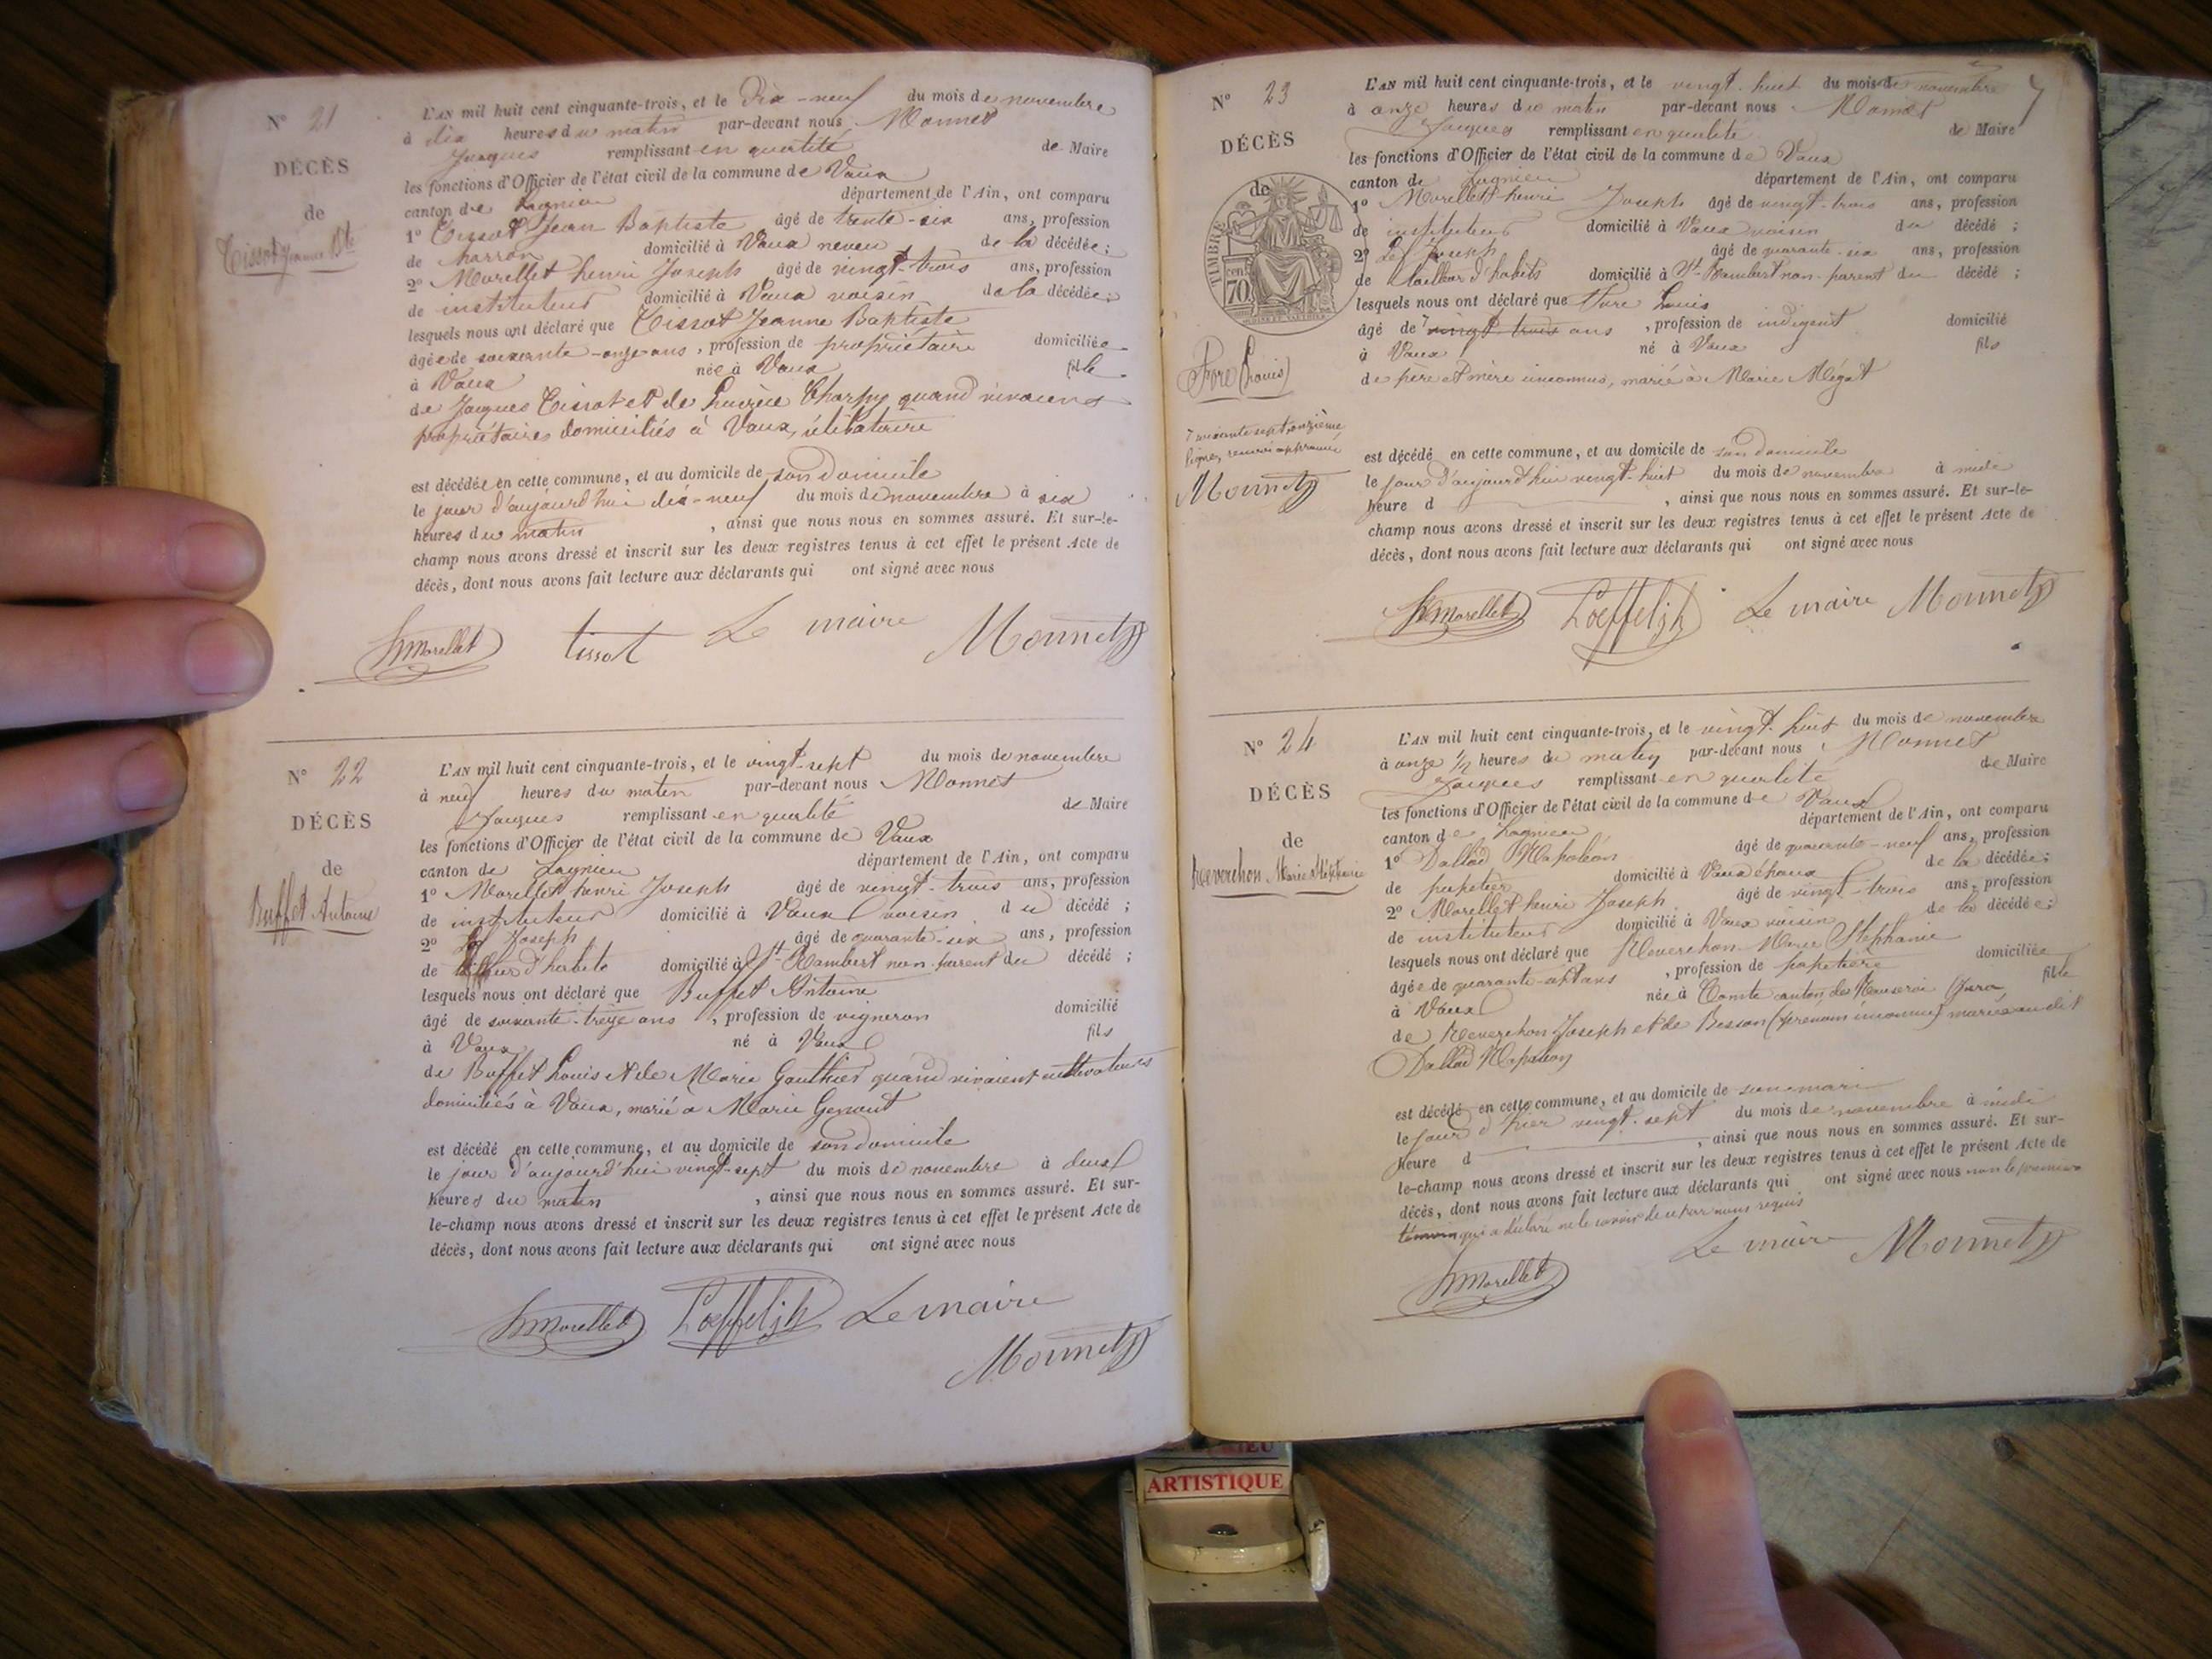 N° 21
DÉCÈS
de
Tissot Jeanne Bte
L'AN mil huit cent cinquante-trois, et le Dix-neuf du mois de novembre
à dix heures du matin par-devant nous Monnet
Jacques remplissant en qualité de Maire
les fonctions d'Officier de l'état civil de la commune de Vaux
canton de Lagnieu département de l'Ain, ont comparu
1° Tissot Jean Baptiste âgé de trente-six ans, profession
de charron domicilié à Vaux neveu de la décédée ;
2° Morellet henri Joseph âgé de vingt-trois ans, profession
de instituteur domicilié à Vaux voisin de la décédée ;
lesquels nous ont déclaré que Tissot Jeanne Baptiste
âgée de soixante-onze ans, profession de propriétaire domiciliée
à Vaux née à Vaux fille
de Jacques Tissot et de Charpy quand vivaient
propriétaires domiciliés à Vaux, célibataire
est décédée en cette commune, et au domicile de son domicile
le jour d'aujourd'hui dix-neuf du mois de novembre à six
heures du matin, ainsi que nous nous en sommes assuré. Et sur-le-
champ nous avons dressé et inscrit sur les deux registres tenus à cet effet le présent Acte de
décès, dont nous avons fait lecture aux déclarants qui ont signé avec nous
hmorellet tissot Le maire Monnet
N° 22
DÉCÈS
de
Buffet Antoine
L'AN mil huit cent cinquante-trois, et le vingt-sept du mois de novembre
à neuf heures du matin par-devant nous Monnet
Jacques remplissant en qualité de Maire
les fonctions d'Officier de l'état civil de la commune de Vaux
canton de Lagnieu département de l'Ain, ont comparu
1° Morellet henri Joseph âgé de vingt-trois ans, profession
de instituteur domicilié à Vaux voisin du décédé ;
2° Joseph âgé de quarante-six ans, profession
de tailleur d'habits domicilié à St-Rambert non-parent du décédé ;
lesquels nous ont déclaré que Buffet Antoine
âgé de soixante-treize ans, profession de vigneron domicilié
à Vaux né à Vaux fils
de Buffet Louis et de Marie Gauthier quand vivaient cultivateurs
domiciliés à Vaux, marié à Marie
est décédé en cette commune, et au domicile de son domicile
le jour d'aujourd'hui vingt-sept du mois de novembre à deux
heures du matin, ainsi que nous nous en sommes assuré. Et sur-
le-champ nous avons dressé et inscrit sur les deux registres tenus à cet effet le présent Acte de
décès, dont nous avons fait lecture aux déclarants qui ont signé avec nous
hmorellet Le maire
Monnet
N° 23
DÉCÈS
de
TIMBRE
cent
70
(Louis)
7 soixante sept, onzième
ligne, renvoi approuvé
Monnet
7
L'AN mil huit cent cinquante-trois, et le vingt-huit du mois de novembre
à onze heures du matin par-devant nous Monnet
Jacques remplissant en qualité de Maire
les fonctions d'Officier de l'état civil de la commune de Vaux
canton de Lagnieu département de l'Ain, ont comparu
1° Morellet henri Joseph âgé de vingt-trois ans, profession
de instituteur domicilié à Vaux voisin du décédé ;
2° Joseph âgé de quarante-six ans, profession
de tailleur d'habits domicilié à St-Rambert non-parent du décédé ;
lesquels nous ont déclaré que Louis
âgé de 7 vingt-trois ans, profession de indigent domicilié
à Vaux né à Vaux fils
de père et mère inconnus, marié à Marie
est décédé en cette commune, et au domicile de son domicile
le jour d'aujourd'hui vingt-huit du mois de novembre à midi
heure d , ainsi que nous nous en sommes assuré. Et sur-le-
champ nous avons dressé et inscrit sur les deux registres tenus à cet effet le présent Acte de
décès, dont nous avons fait lecture aux déclarants qui ont signé avec nous
hmorellet Le maire Monnet
N° 24
DÉCÈS
de
Reverchon Marie Stéphanie
L'AN mil huit cent cinquante-trois, et le vingt-huit du mois de novembre
à onze 1/2 heures du matin par-devant nous Monnet
Jacques remplissant en qualité de Maire
les fonctions d'Officier de l'état civil de la commune de Vaux
canton de Lagnieu département de l'Ain, ont comparu
1° Dallod Napoléon âgé de quarante-neuf ans, profession
de papetier domicilié à Vaux époux de la décédée ;
2° Morellet henri Joseph âgé de vingt-trois ans, profession
de instituteur domicilié à Vaux voisin de la décédée ;
lesquels nous ont déclaré que Reverchon Marie Stéphanie
âgée de quarante-sept ans, profession de papetière domiciliée
à Vaux née à canton de (Jura) fille
de Reverchon Joseph et de Besson (prénom inconnu) mariée audit
Dallod Napoléon
est décédé en cette commune, et au domicile de son mari
le jour d'hier vingt-sept du mois de novembre à midi
heure d , ainsi que nous nous en sommes assuré. Et sur-
le-champ nous avons dressé et inscrit sur les deux registres tenus à cet effet le présent Acte de
décès, dont nous avons fait lecture aux déclarants qui ont signé avec nous non le premier
témoin qui a déclaré ne le savoir de ce par nous requis
hmorellet Le maire Monnet
ARTISTIQUE